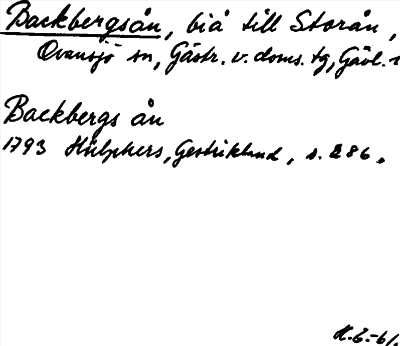 Backbergsån, biå till Storån,
Ovansjö sn, Gästr. v. doms. tg, Gävl.
Backbergs ån
1793 Hülphers, Gestrikland, s. 286.